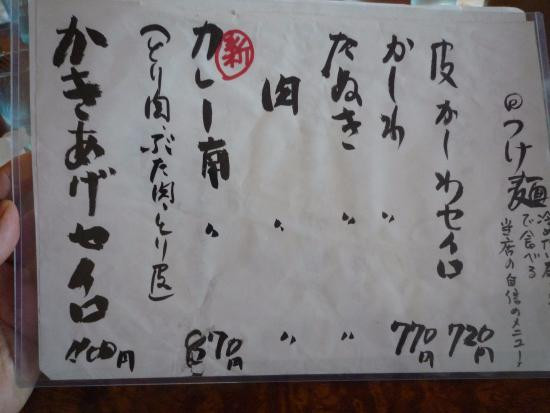 つけ麺
で食べる
当店の自信のメニュー!
皮かしわセイロ 720円
かしわ 〃 770円
たぬき 〃 〃
肉 〃 〃
新 カレー南 〃 870円
(とり肉、ぶた肉、とり皮)
かきあげセイロ 円